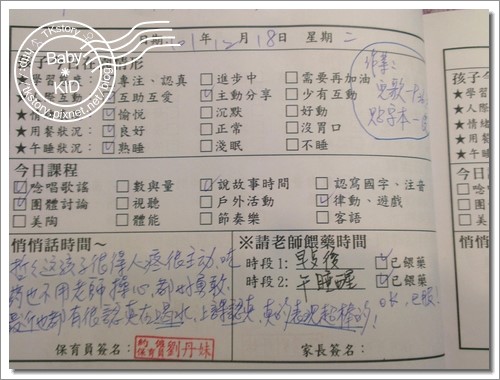 TKstory
Baby and KID
tkstory.pixnet.net/blog
日期 101年12月18日 星期二
孩子今日在 情形
★學習 專注、認真 進步中 需要再加油
互動 互助互愛 主動分享 少有互動
★情 愉悅 沉默 好動
★用餐狀況： 良好 正常 沒胃口
★午睡狀況： 熟睡 淺眠 不睡
今日課程
唸唱歌謠 數與量 說故事時間 認寫國字、注音
團體討論 視聽 戶外活動 律動、遊戲
美陶 體能 節奏樂 客語
悄悄話時間～
這孩子很得人疼很主動.吃
藥也不用老師擔心都也勇敢.
他都有很認真在喝水,上課認真,真的表現超棒的!
保育員簽名：
約僱保育員劉丹妹
※請老師餵藥時間
時段1: 早餐後 已餵藥
時段2: 午睡醒 已餵藥
OK,已服!
家長簽名：
孩子今
★學習
★人際
★情緒
★用餐
★午睡
今日
悄悄